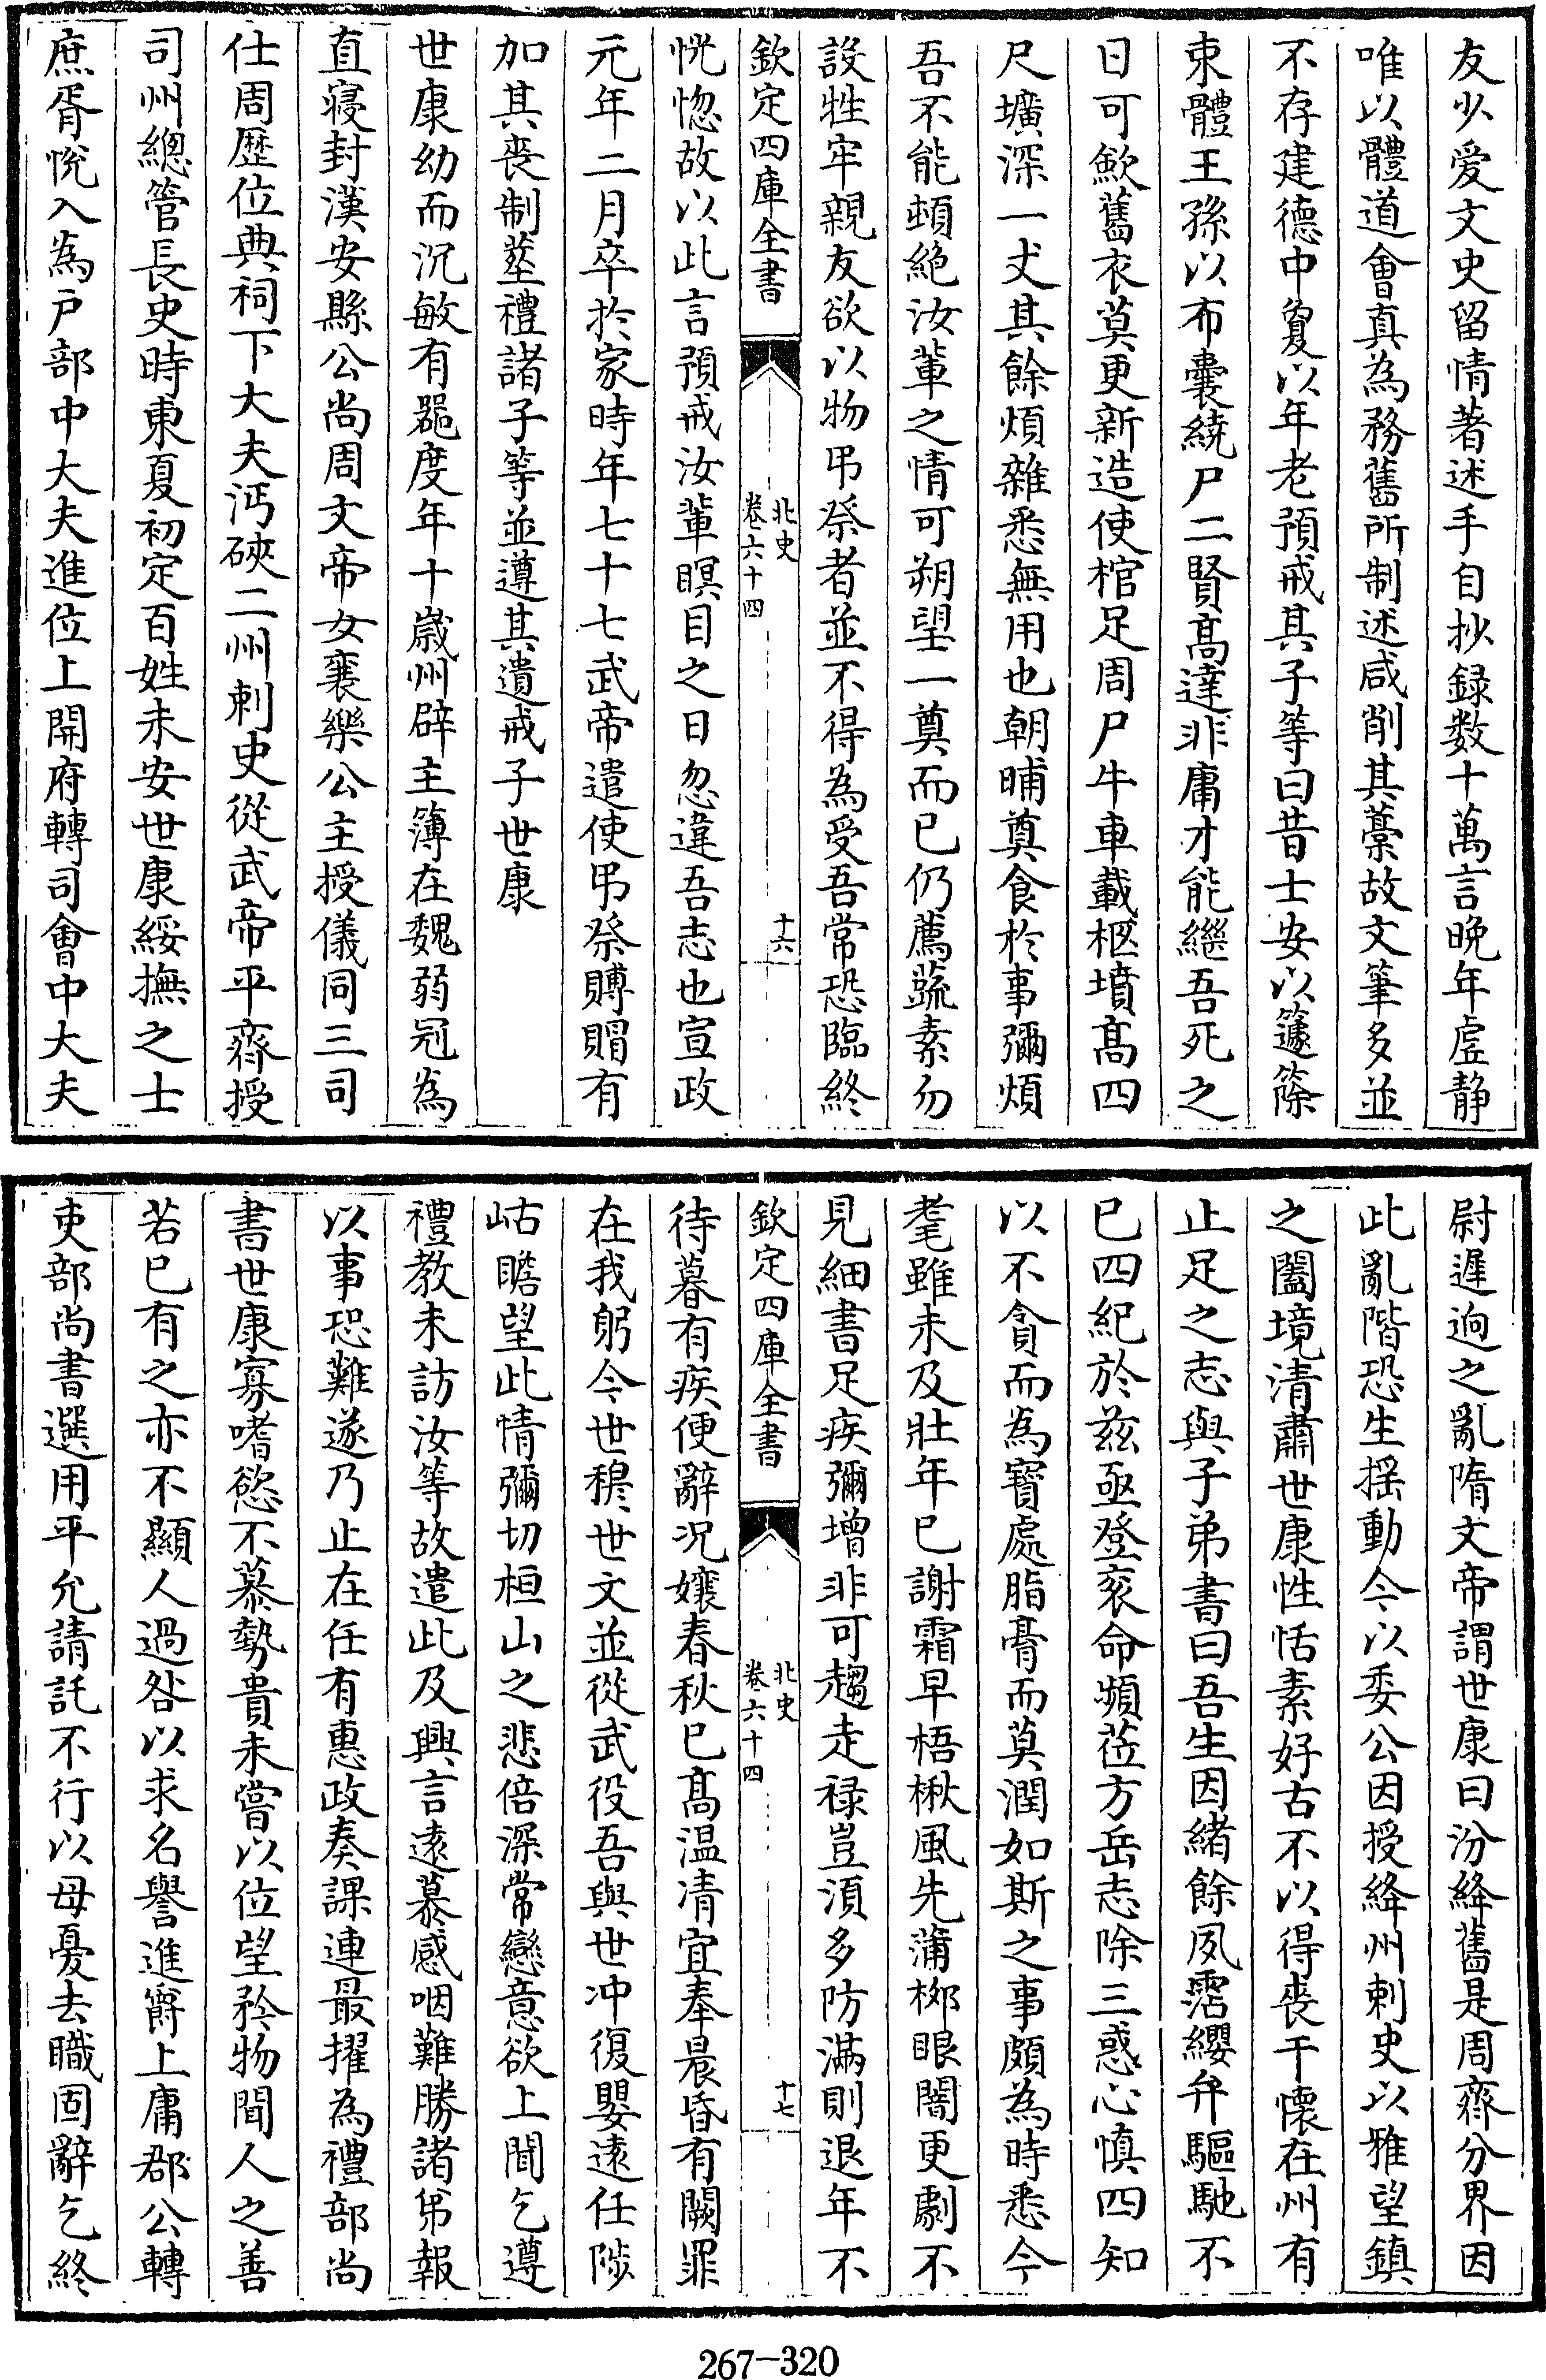 友少爱文史留情著述手自抄録数十萬言晚年虚静
唯以體道會真為務舊所制述咸削其藁故文筆多並
不存建德中敻以年老預戒其子等曰昔士安以籧篨
束體王孫以布囊繞尸二賢高達非庸才能繼吾死之
日可歛舊衣莫更新造使棺足周尸牛車載柩墳高四
尺壙深一丈其餘煩雜悉無用也朝晡奠食於事彌煩
吾不能頓絶汝輩之情可朔望一奠而已仍薦蔬素勿
設牲牢親友欲以物弔祭者並不得為受吾常恐臨終
欽定四庫全書
北史
卷六十四
十六
恍惚故以此言預戒汝輩瞑目之日忽違吾志也宣政
元年二月卒於家時年七十七武帝遣使弔祭賻賵有
加其喪制塟禮諸子等並遵其遺戒子世康
世康幼而沉敏有器度年十歲州辟主簿在魏弱冠為
直寢封漢安縣公尚周文帝女襄樂公主授儀同三司
仕周歷位典祠下大夫沔硤二州刺史從武帝平齊授
司州總管長史時東夏初定百姓未安世康綏撫之士
庶胥悅入為户部中大夫進位上開府轉司會中大夫
尉遲迥之亂隋文帝謂世康曰汾絳舊是周齊分界因
此亂階恐生揺動今以委公因授絳州刺史以雅望鎮
之闔境清肅世康性恬素好古不以得喪干懷在州有
止足之志與子弟書曰吾生因緒餘夙霑纓弁驅馳不
已四紀於兹亟登衮命頻莅方岳志除三惑心慎四知
以不貪而為寳處脂膏而莫潤如斯之事頗為時悉今
耄雖未及壯年已謝霜早梧楸風先蒲栁眼闇更劇不
見細書足疾彌增非可趨走禄豈湏多防滿則退年不
欽定四庫全書
北史
卷六十四
十七
待暮有疾便辭况孃春秋已高温凊宜奉晨昏有闕罪
在我躬今世穆世文並從武役吾與世冲復嬰遠任陟
岵瞻望此情彌切桓山之悲倍深常戀意欲上聞乞遵
禮教未訪汝等故遣此及興言遠慕感咽難勝諸弟報
以事恐難遂乃止在任有惠政奏課連最擢為禮部尚
書世康寡嗜慾不慕勢貴未嘗以位望矜物聞人之善
若已有之亦不顯人過咎以求名譽進爵上庸郡公轉
吏部尚書選用平允請託不行以母憂去職固辭乞終
267-320